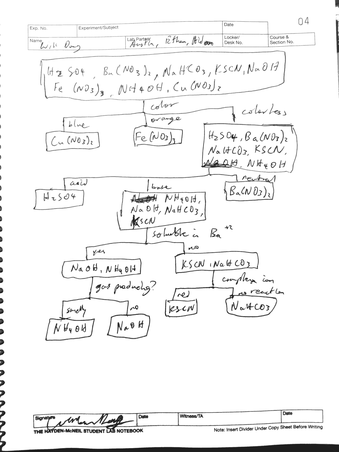 04
Exp. No.
Experiment/Subject
Date
Name
Lab Partner
Locker/
Desk No.
Course &
Section No.
Will
Austin, Ethan,
H2SO4, Ba(NO3)2, NaHCO3, KSCN, NaOH
Fe(NO3)3, NH4OH, Cu(NO3)2
color
blue
orange
colorless
Cu(NO3)2
Fe(NO3)3
H2SO4, Ba(NO3)2
NaHCO3, KSCN,
NaOH, NH4OH
acid
base
neutral
H2SO4
NH4OH,
NaOH, NaHCO3,
KSCN
Ba(NO3)2
soluble in Ba+2
yes
no
NaOH, NH4OH
KSCN, NaHCO3
gas producing?
complex ion
smelly
no
red
no reaction
NH4OH
NaOH
KSCN
NaHCO3
Signature
Date
Witness/TA
Date
THE HAYDEN-McNEIL STUDENT LAB NOTEBOOK
Note: Insert Divider Under Copy Sheet Before Writing